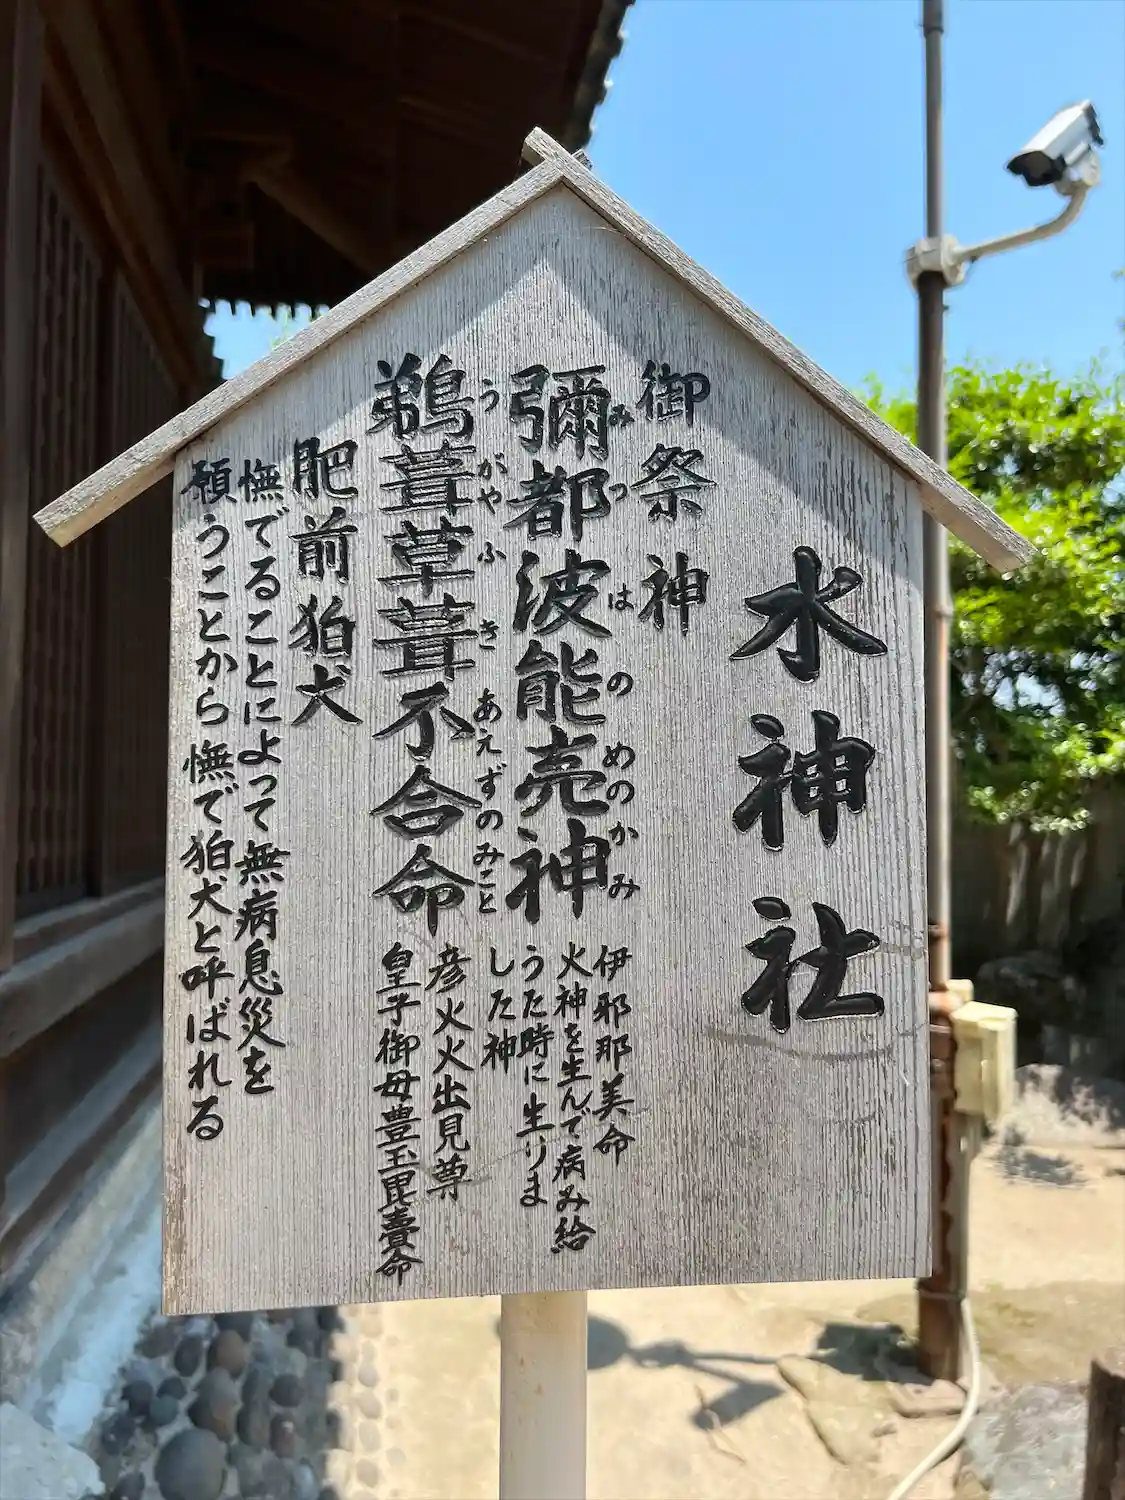 水神社
御祭神
彌都波能売神
みつはのめのかみ
伊耶那美命
火神を生んで病み給
うた時に生りま
した神
鵜葺草葺不合命
うがやふきあえずのみこと
彦火火出見尊
皇子御母豊玉毘賣命
肥前狛犬
憮でることによって無病息災を
願うことから憮で狛犬と呼ばれる